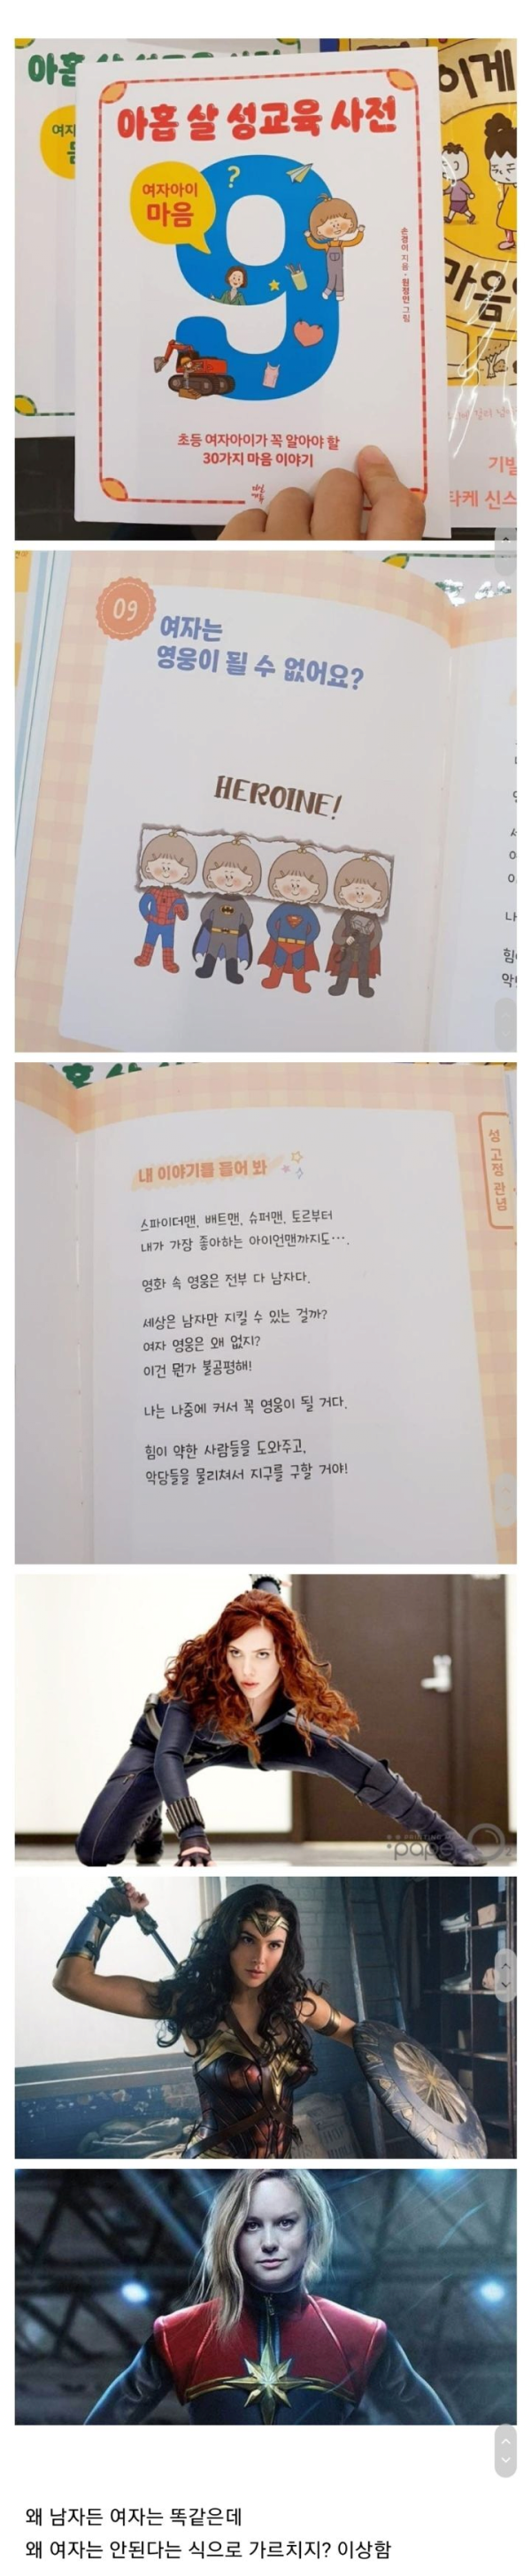 아홉
여자
이게
아홉 살 성교육 사전
여자아이
마음
?
9
손경이 지음·원정민 그림
마음
초등 여자아이가 꼭 알아야 할
30가지 마음 이야기
기발
타케 신스
09
여자는
영웅이 될 수 없어요?
HEROINE!
나
힘
악
성 고정관념
내 이야기를 들어 봐
스파이더맨, 배트맨, 슈퍼맨, 토르부터
내가 가장 좋아하는 아이언맨까지도….
영화 속 영웅은 전부 다 남자다.
세상은 남자만 지킬 수 있는 걸까?
여자 영웅은 왜 없지?
이건 뭔가 불공평해!
나는 나중에 커서 꼭 영웅이 될 거다.
힘이 약한 사람들을 도와주고,
악당들을 물리쳐서 지구를 구할 거야!
왜 남자든 여자는 똑같은데
왜 여자는 안된다는 식으로 가르치지? 이상함